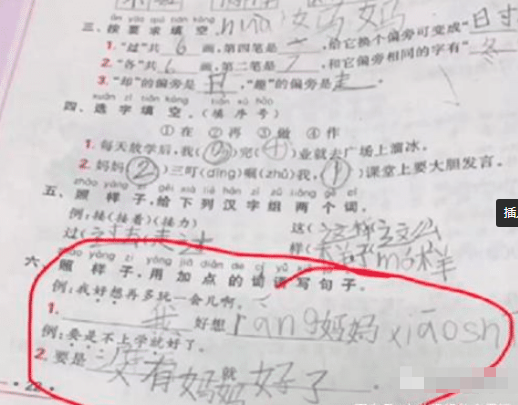 ān yāo qiú tián kòng
三、按要求填空。
1. "过"共6画,第四笔是一,给它换个偏旁可变成"日寸
2. "各"共6画,第二笔是フ,和它偏旁相同的字有"冬
3. "却"的偏旁是卩,"趣"的偏旁是走。
xuǎn zì tián kòng (tián xù hào)
四、选字填空。(填序号)
①在 ②再 ③做 ④作
1. 每天放学后,我(③)完(④)业就去广场上溜冰。
2. 妈妈(②)三叮(dīng)嘱(zhǔ)我,(①)课堂上要大胆发言。
zhào yàng zi gěi xià liè hàn zì zǔ liǎng gè cí
五、照样子,给下列汉字组两个词。
例:接(接着)(接力) 这(这样)(这么
过(过去)(走过 样(样子)(mó样
zhào yàng zi yòng jiā diǎn de cí yǔ xiě jù zi
六、照样子,用加点的词语写句子。
例:我好想再多玩一会儿啊。
1. 我好想ràng妈妈xiāosh
例:要是不上学就好了。
2. 要是没有妈妈就好了
22
插